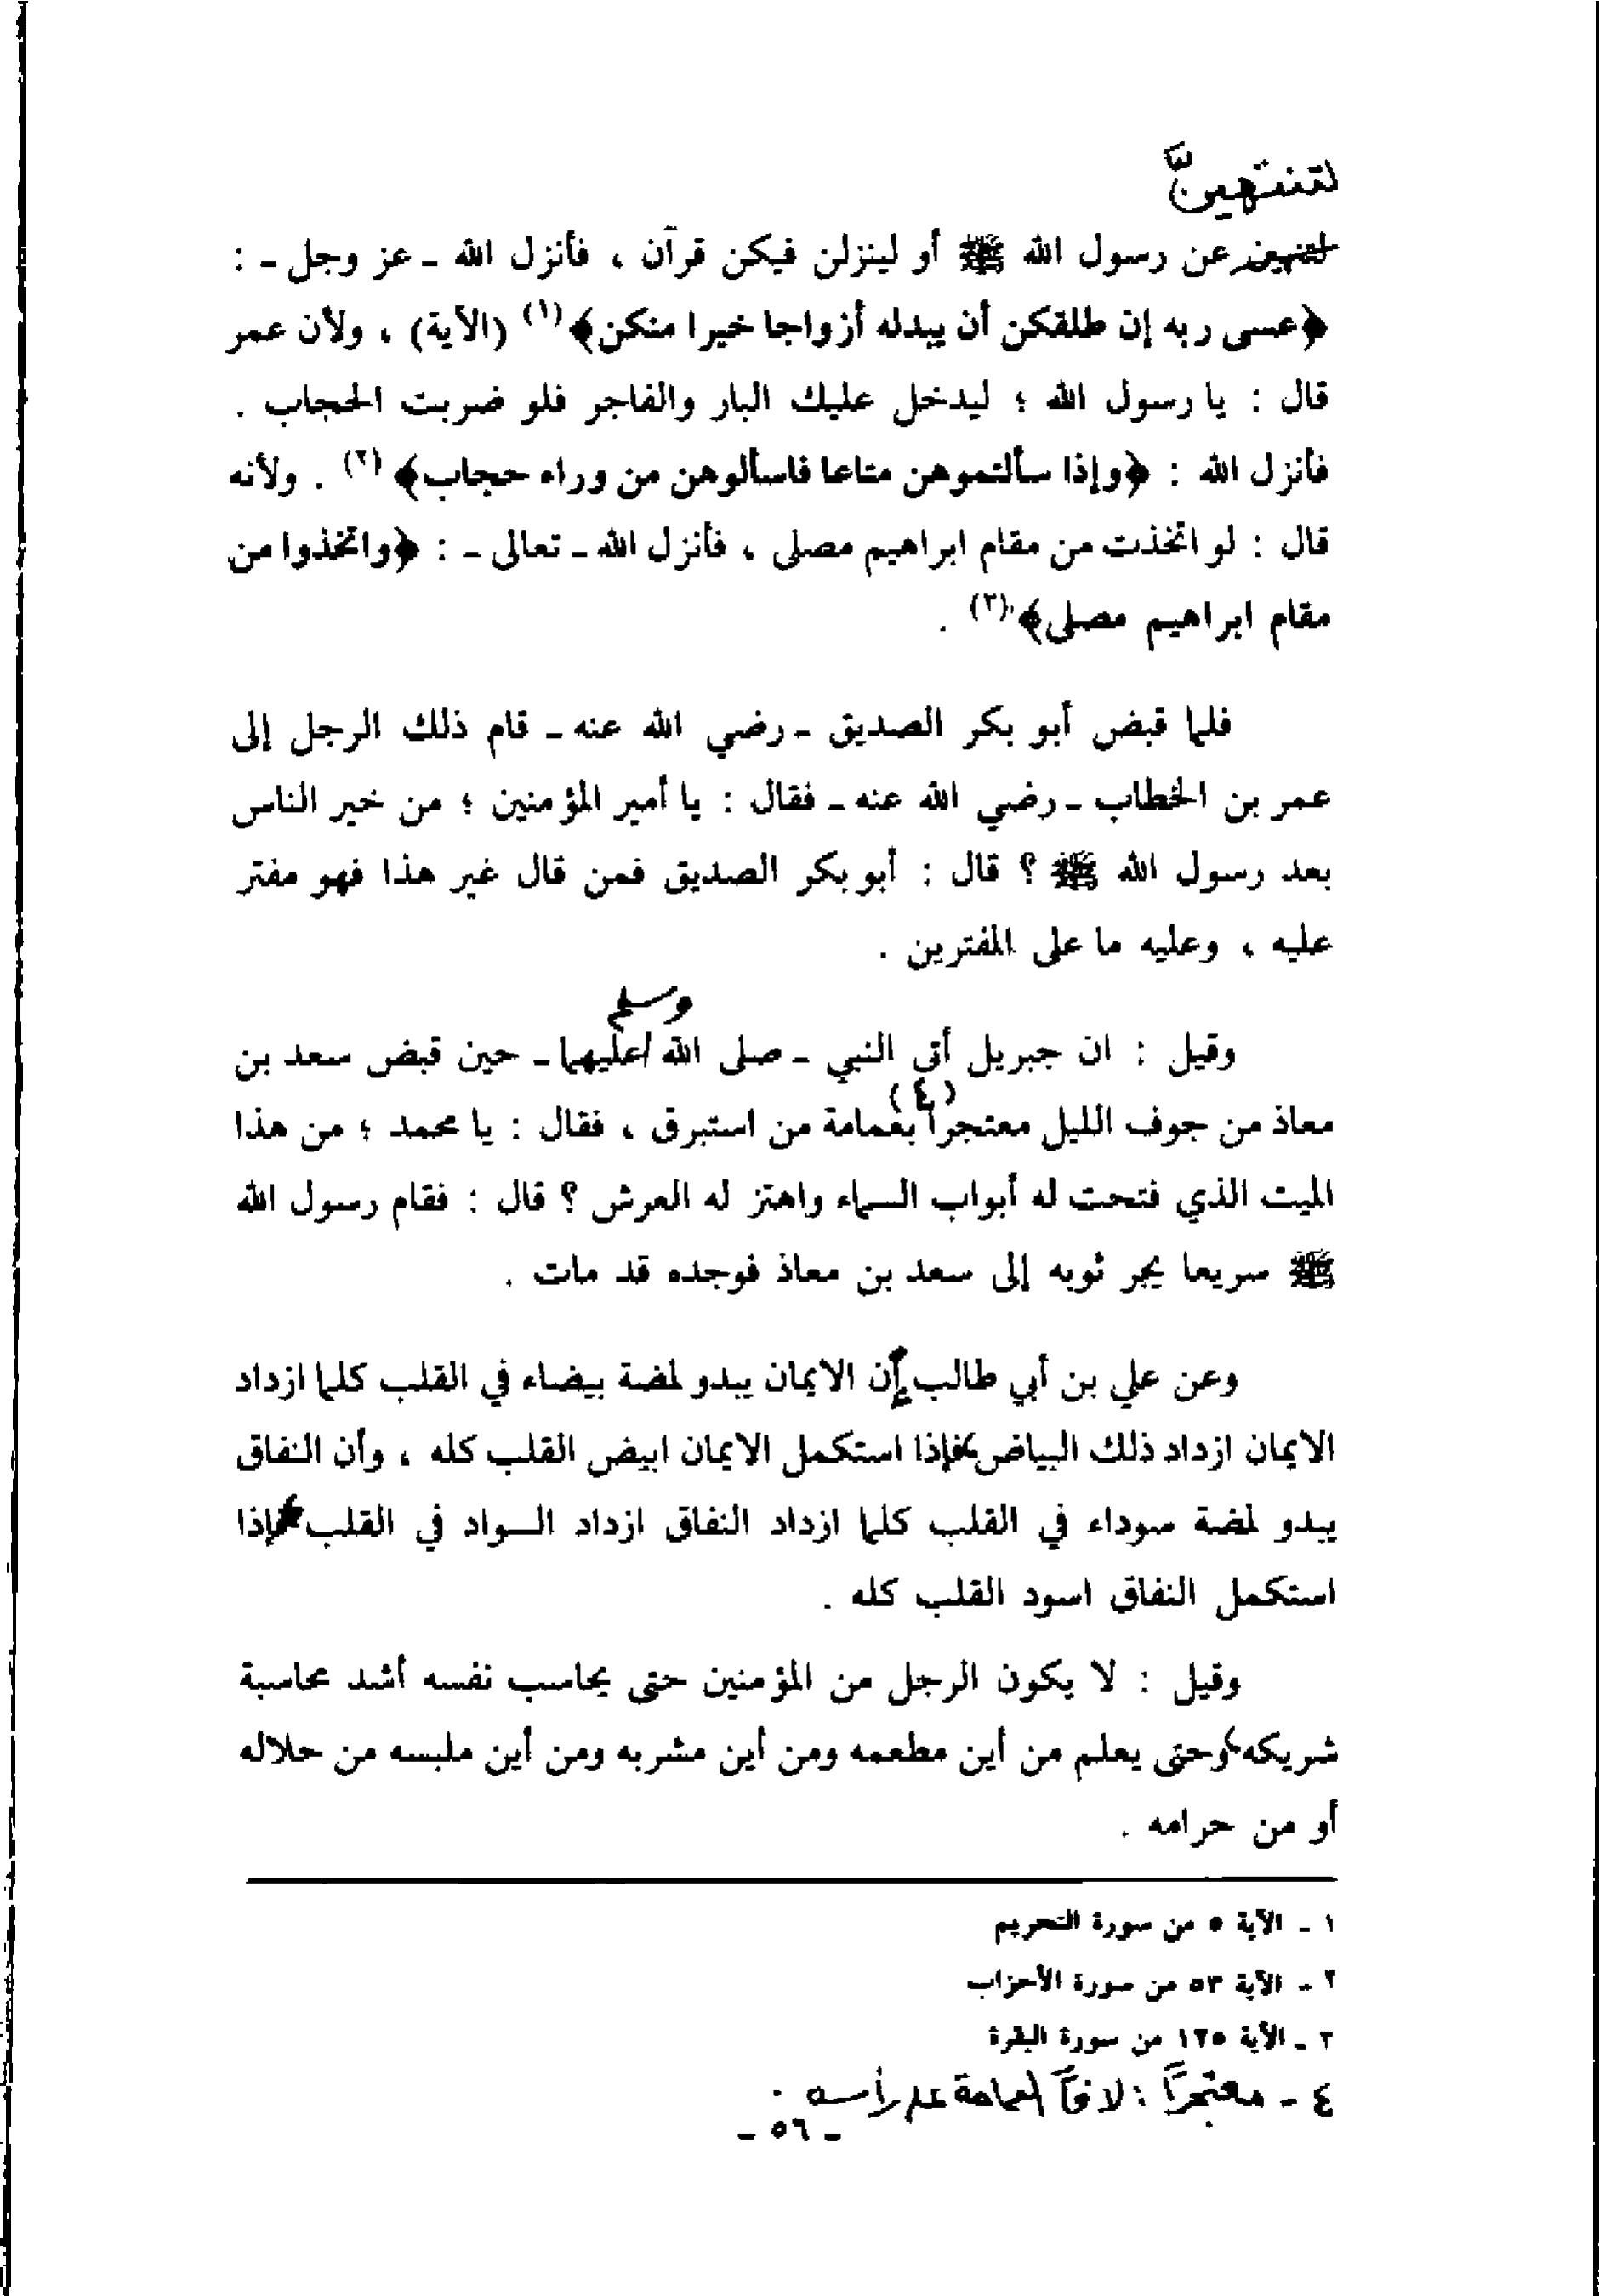 لتنتهينّ
لتنهين عن رسول الله ﷺ أو لينزلن فيكن قرآن ، فأنزل الله ـ عز وجل ـ :
﴿عسى ربه إن طلقكن أن يبدله أزواجا خيرا منكن﴾ (١) (الآية) ، ولأن عمر
قال : يا رسول الله ؛ ليدخل عليك البار والفاجر فلو ضربت الحجاب .
فأنزل الله : ﴿وإذا سألتموهن متاعا فاسألوهن من وراء حجاب﴾ (٢) . ولأنه
قال : لو اتخذت من مقام ابراهيم مصلى ، فأنزل الله ـ تعالى ـ : ﴿واتخذوا من
مقام ابراهيم مصلى﴾ (٣) .
فلما قبض أبو بكر الصديق ـ رضي الله عنه ـ قام ذلك الرجل إلى
عمر بن الخطاب ـ رضي الله عنه ـ فقال : يا أمير المؤمنين ؛ من خير الناس
بعد رسول الله ﷺ ؟ قال : أبو بكر الصديق فمن قال غير هذا فهو مفتر
عليه ، وعليه ما على المفترين .
وسلم
وقيل : ان جبريل أتى النبي ـ صلى الله / عليهما ـ حين قبض سعد بن
معاذ من جوف الليل معتجرا (٤) بعمامة من استبرق ، فقال : يا محمد ؛ من هذا
الميت الذي فتحت له أبواب السماء واهتز له العرش ؟ قال : فقام رسول الله
ﷺ سريعا يجر ثوبه إلى سعد بن معاذ فوجده قد مات .
وعن علي بن أبي طالب إن الايمان يبدو لمضة بيضاء في القلب كلما ازداد
الايمان ازداد ذلك البياض ، فإذا استكمل الايمان ابيض القلب كله ، وأن النفاق
يبدو لمضة سوداء في القلب كلما ازداد النفاق ازداد السواد في القلب ، فإذا
استكمل النفاق اسود القلب كله .
وقيل : لا يكون الرجل من المؤمنين حتى يحاسب نفسه أشد محاسبة
شريكه ، وحتى يعلم من أين مطعمه ومن أين مشربه ومن أين ملبسه من حلاله
أو من حرامه .
١ ـ الآية ٥ من سورة التحريم
٢ ـ الآية ٥٣ من سورة الأحزاب
٣ ـ الآية ١٢٥ من سورة البقرة
٤ ـ معتجراً : لافاً العمامة على رأسه .
ـ ٥٦ ـ